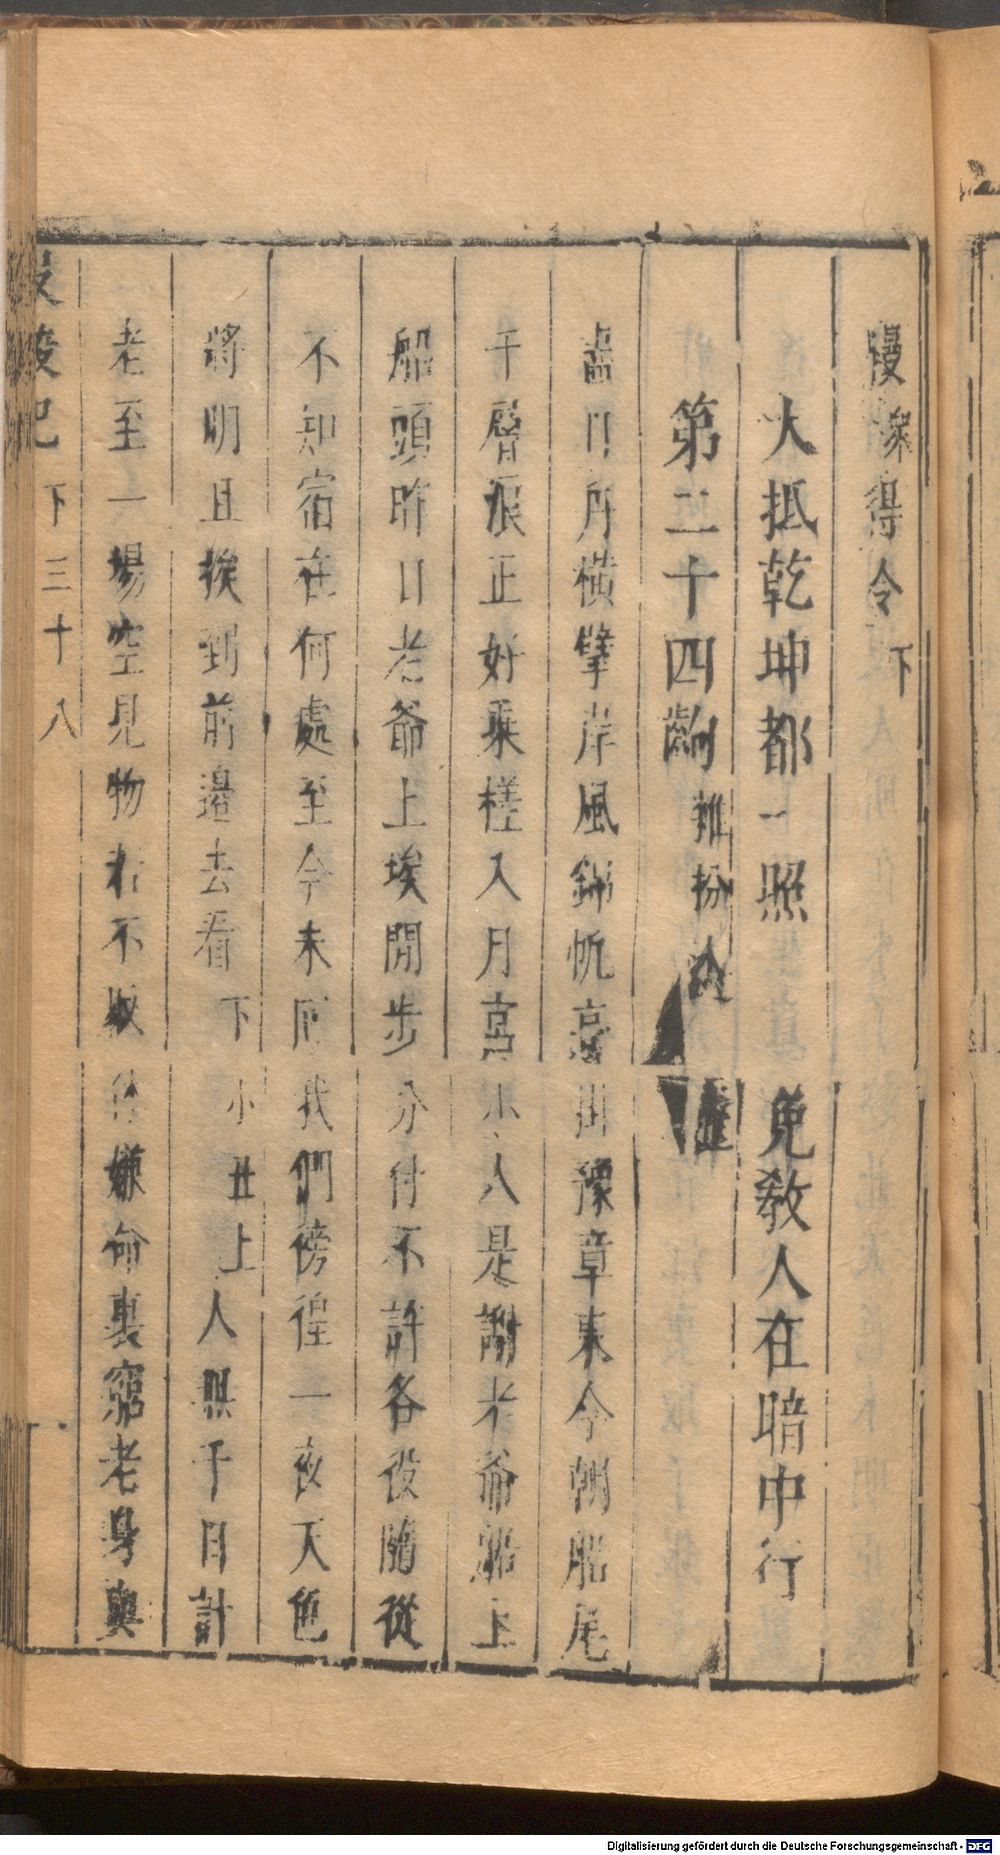 得令下
大抵乾坤都一照 免教人在暗中行
第二十四齣 雜扮
月橫擘岸風錦帆高掛豫章東今朝船尾
千層浪正好乘槎入月宮小人是謝老爺船上
船頭昨日老爺上埃閒步分付不許各役隨從
不知宿在何處至今未回我們傍徨一夜天色
將明且挨到前邊去看下 小丑上人無千日計
老至一場空見物若不取休嫌命裏窮老身與
投梭記 下 三十八
Digitalisierung gefördert durch die Deutsche Forschungsgemeinschaft - DFG